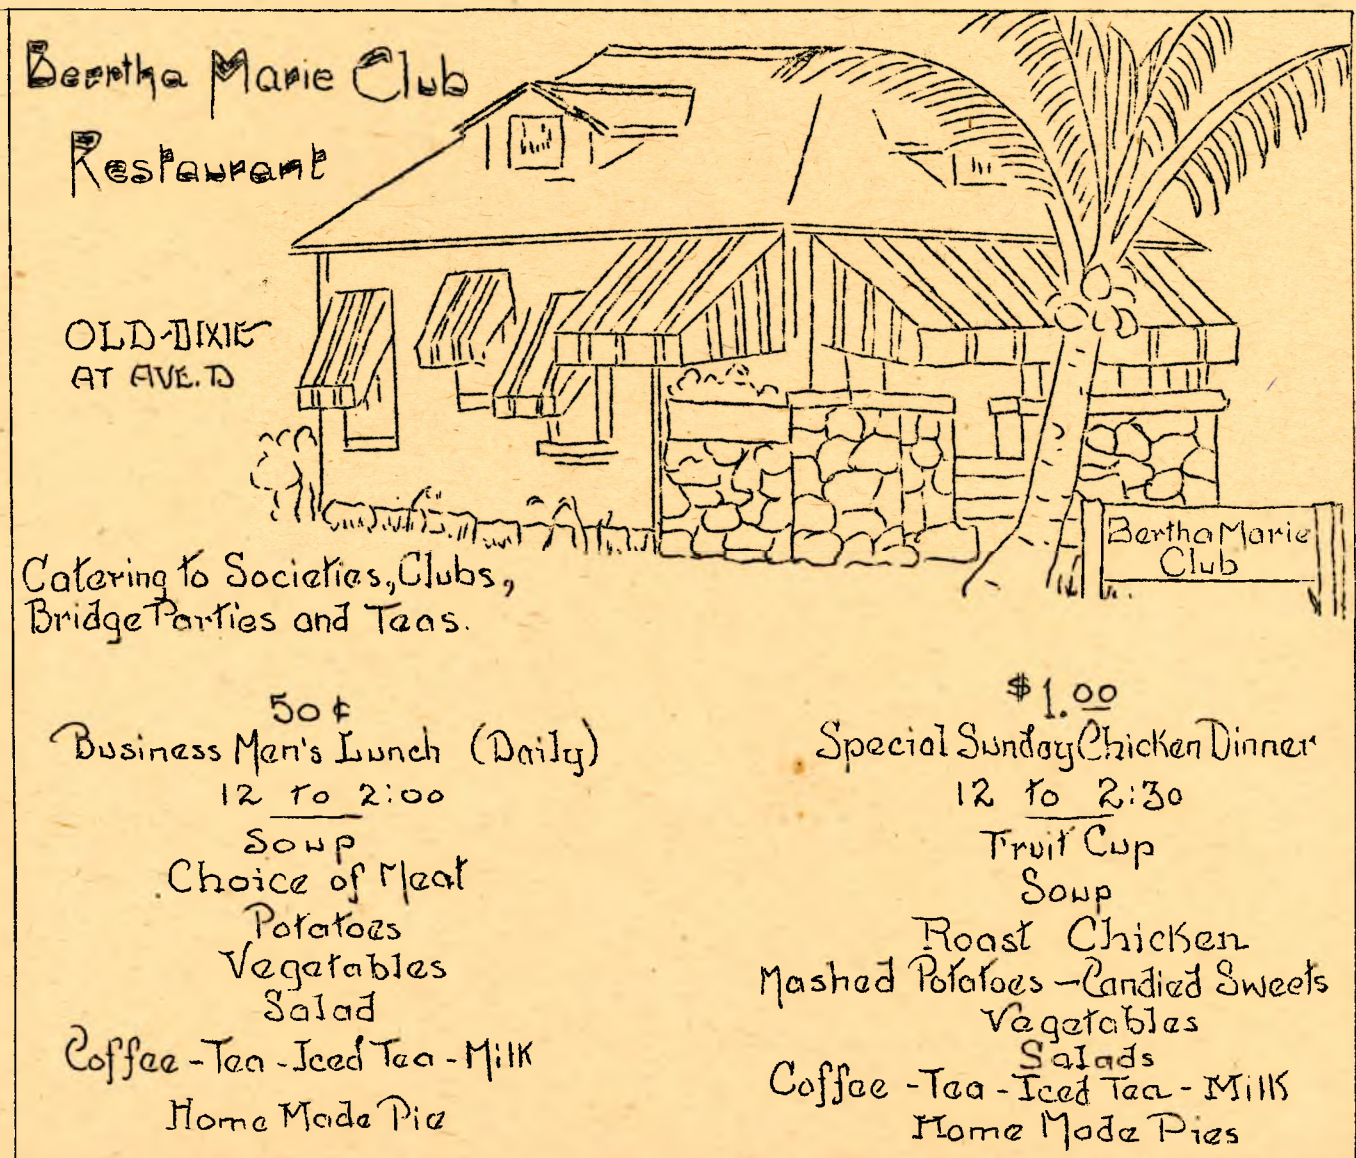 Bertha Marie Club
Restaurant
OLD-DIXIE
AT AVE. D
Bertha Marie
Club
Catering to Societies, Clubs,
Bridge Parties and Teas.
50¢
Business Men's Lunch (Daily)
12 to 2:00
Soup
Choice of Meat
Potatoes
Vegetables
Salad
Coffee - Tea - Iced Tea - Milk
Home Made Pie
$1.00
Special Sunday Chicken Dinner
12 to 2:30
Fruit Cup
Soup
Roast Chicken
Mashed Potatoes - Candied Sweets
Vegetables
Salads
Coffee - Tea - Iced Tea - Milk
Home Made Pies